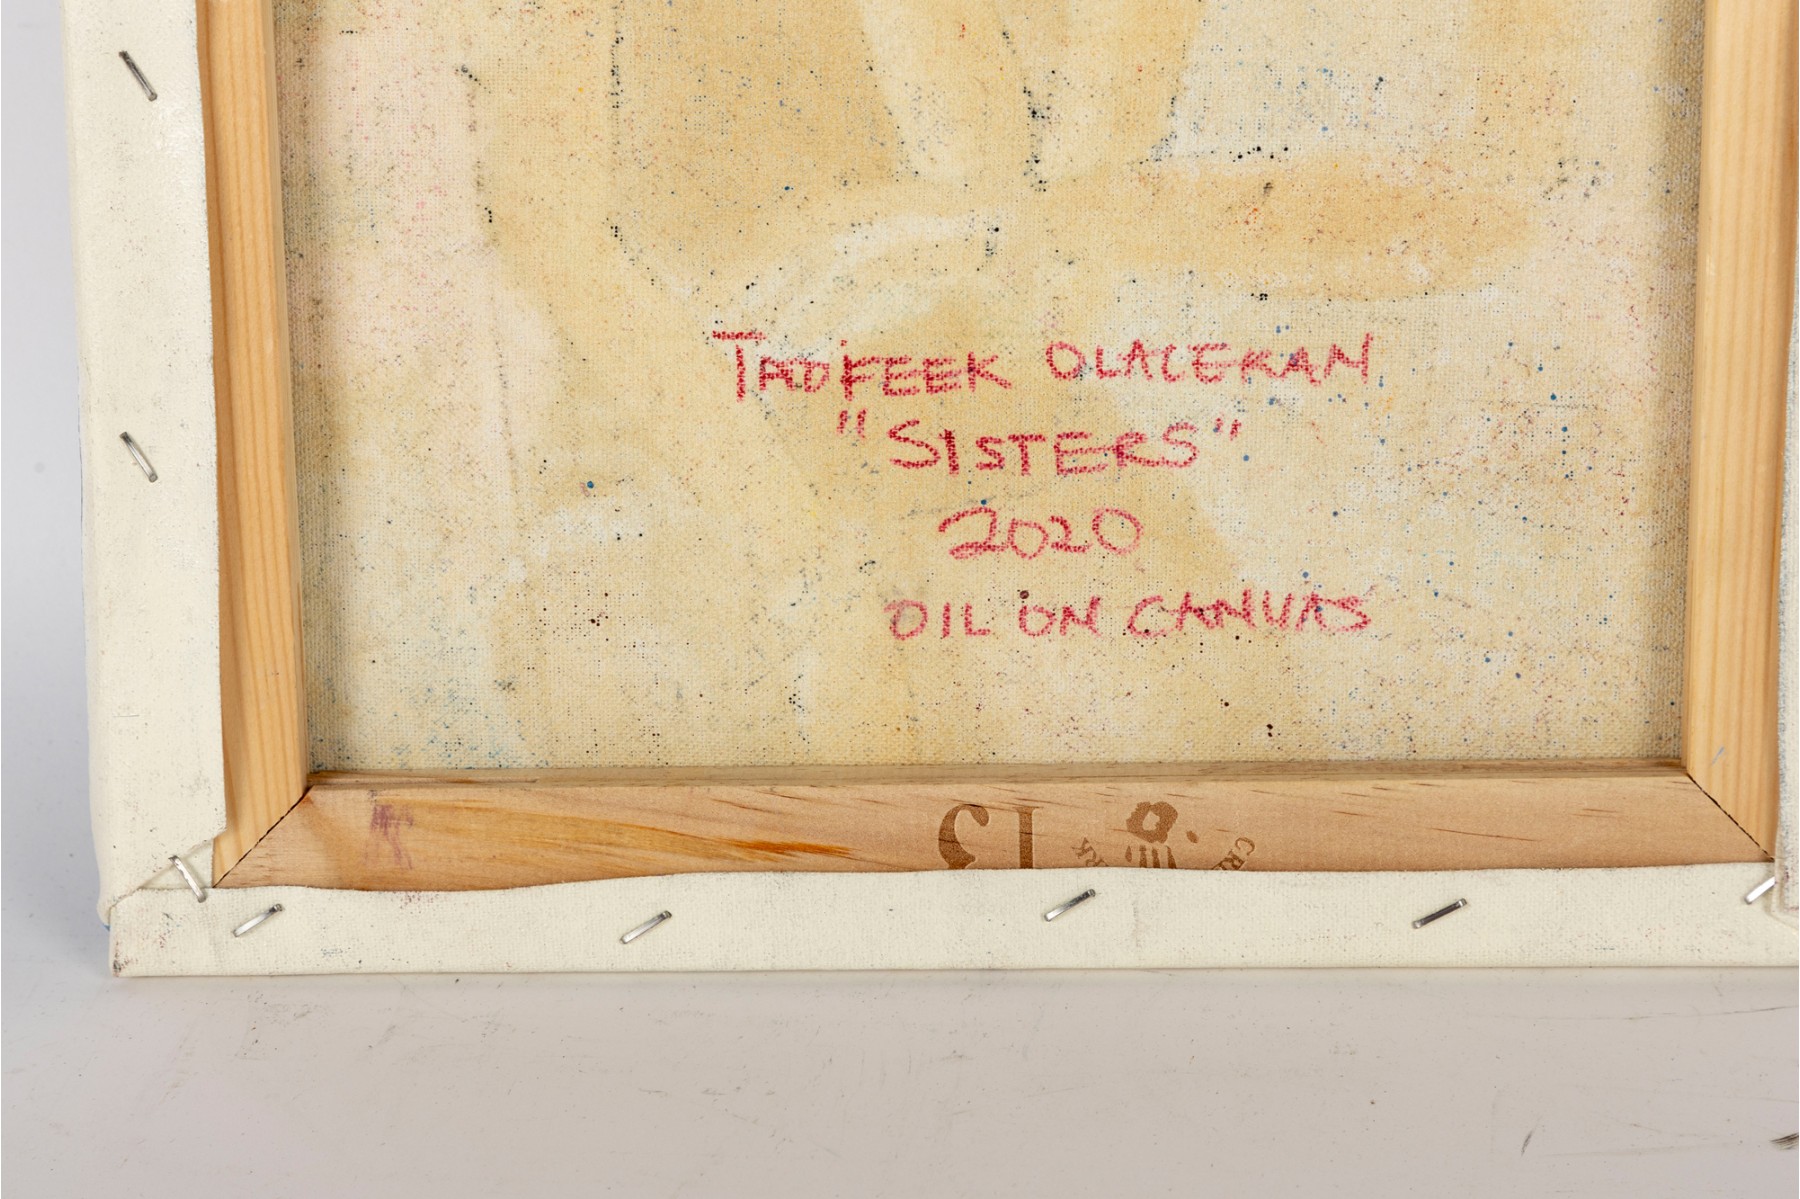 TAOFEEK OLALEKAN
"SISTERS"
2020
OIL ON CANVAS